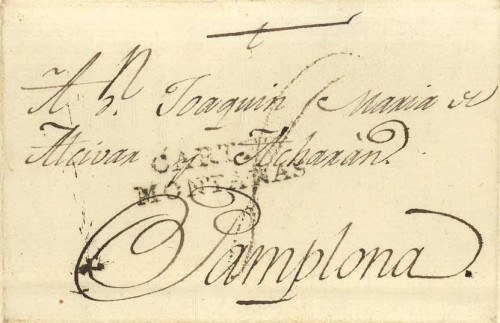 A Dn. Joaquin Maria de
Alcivar y Acharán.
MONTAÑAS
Pamplona.